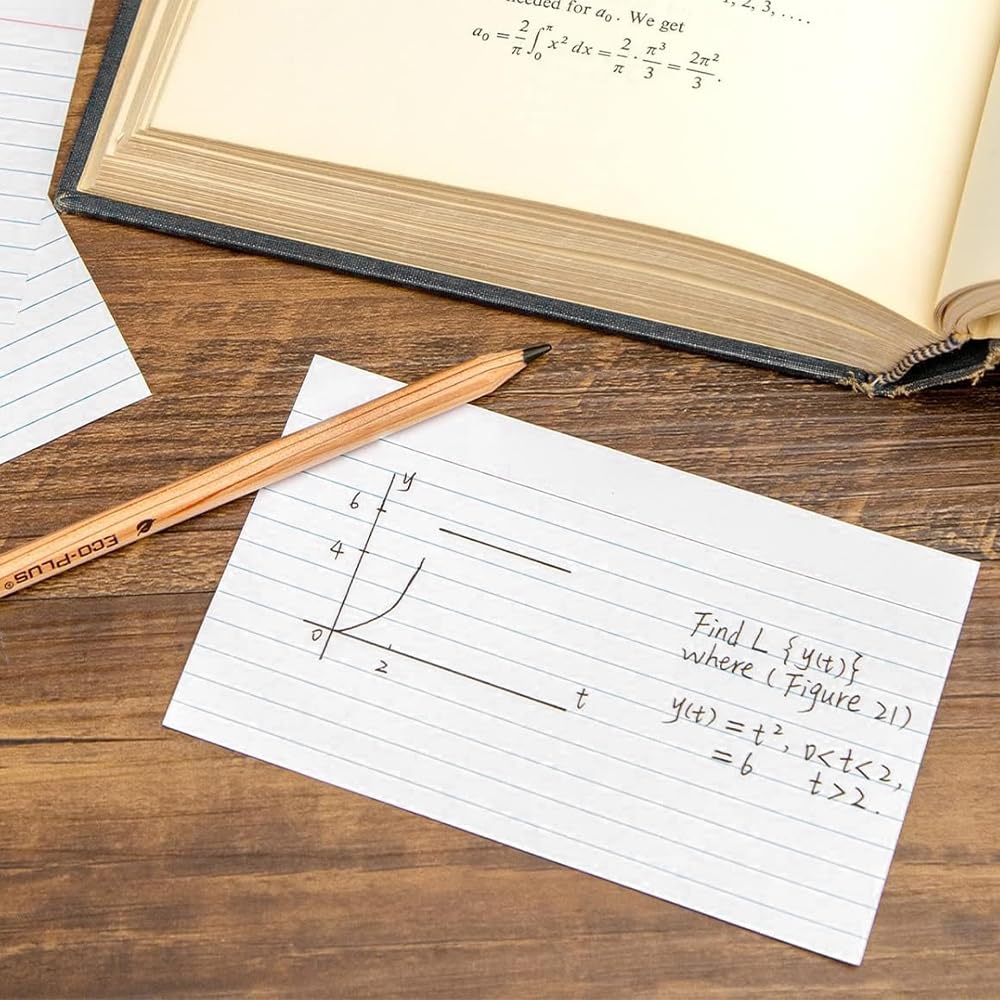 1, 2, 3, ....
needed for a₀. We get
a₀ = 2/π ∫₀^π x² dx = 2/π · π³/3 = 2π²/3.
ECO-PLUS®
y
6
4
0
2
t
Find L {y(t)}
where (Figure 21)
y(t) = t², 0<t<2,
= 6 t>2.